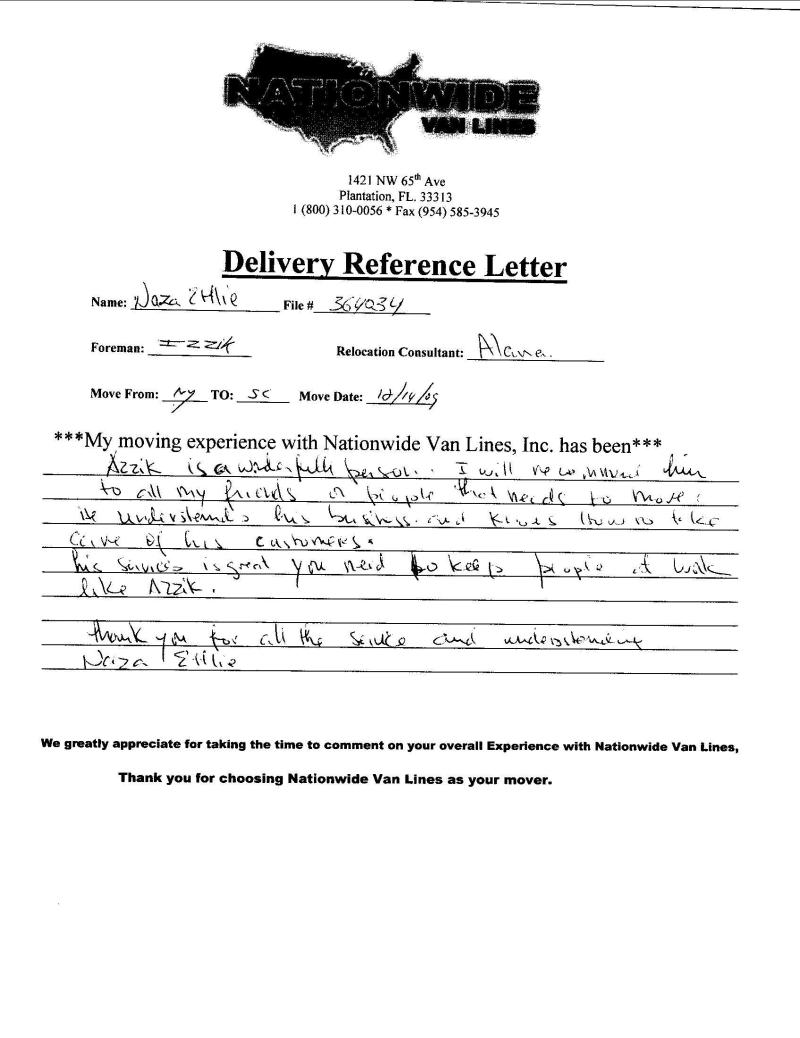 NATIONWIDE
VAN LINES
1421 NW 65th Ave
Plantation, FL. 33313
1 (800) 310-0056 * Fax (954) 585-3945
Delivery Reference Letter
Name: Naza Ettlie File # 364034
Foreman: Izzik Relocation Consultant: Alana
Move From: NY TO: SC Move Date: 12/14/09
***My moving experience with Nationwide Van Lines, Inc. has been***
Azzik is a wonderfull person. I will recommend him
to all my friends or people that needs to move.
He understand's his business and knows how to take
care of his customers.
his services is great you need to keep people at work
like Azzik.
thank you for all the service and understanding
Naza Ettlie
We greatly appreciate for taking the time to comment on your overall Experience with Nationwide Van Lines,
Thank you for choosing Nationwide Van Lines as your mover.